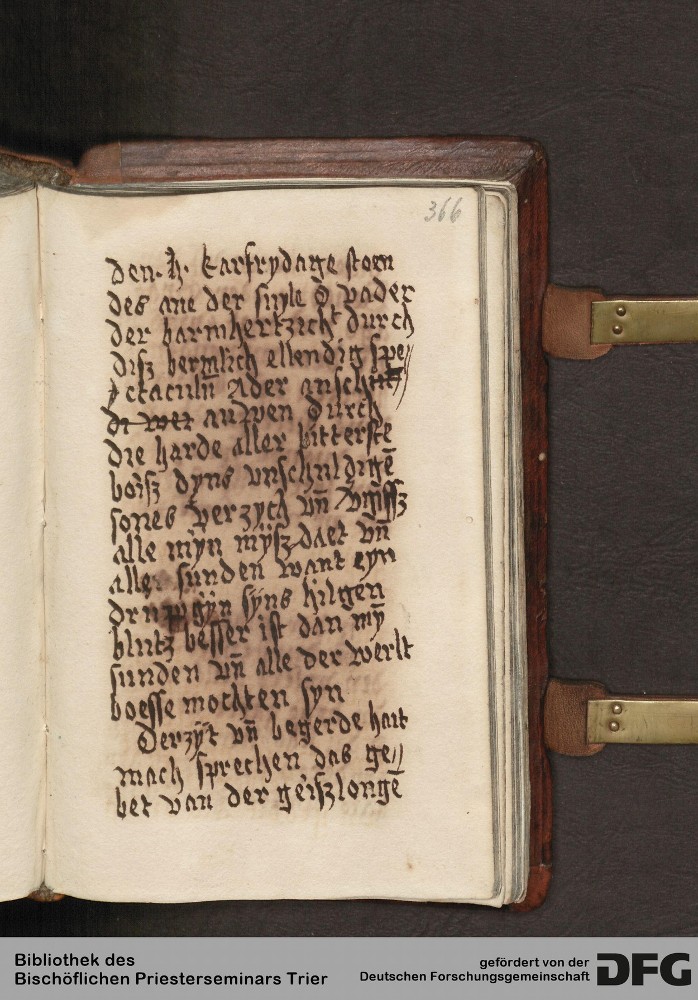 366
den. H. karfrydage stoen
des ane der suyle O vader
der barmhertzicht durch
disz bermlich ellendig spe//
ctaculu̅ Ader anschau//
di wer auwen Durch
die harde aller bitterste
boisz dyns vnschuldige̅
sones verzych vn̅
alle myn mysz daet vn̅
alle sunden want eyn
syns hilgen
blutz besser ist dan my̅
sunden vn̅ alle der werlt
boesse mochten syn
Derzyt vn̅ begerde hait
mach sprechen das ge//
bet van der geiszlonge̅
Bibliothek des
Bischöflichen Priesterseminars Trier
gefördert von der
Deutschen Forschungsgemeinschaft
DFG